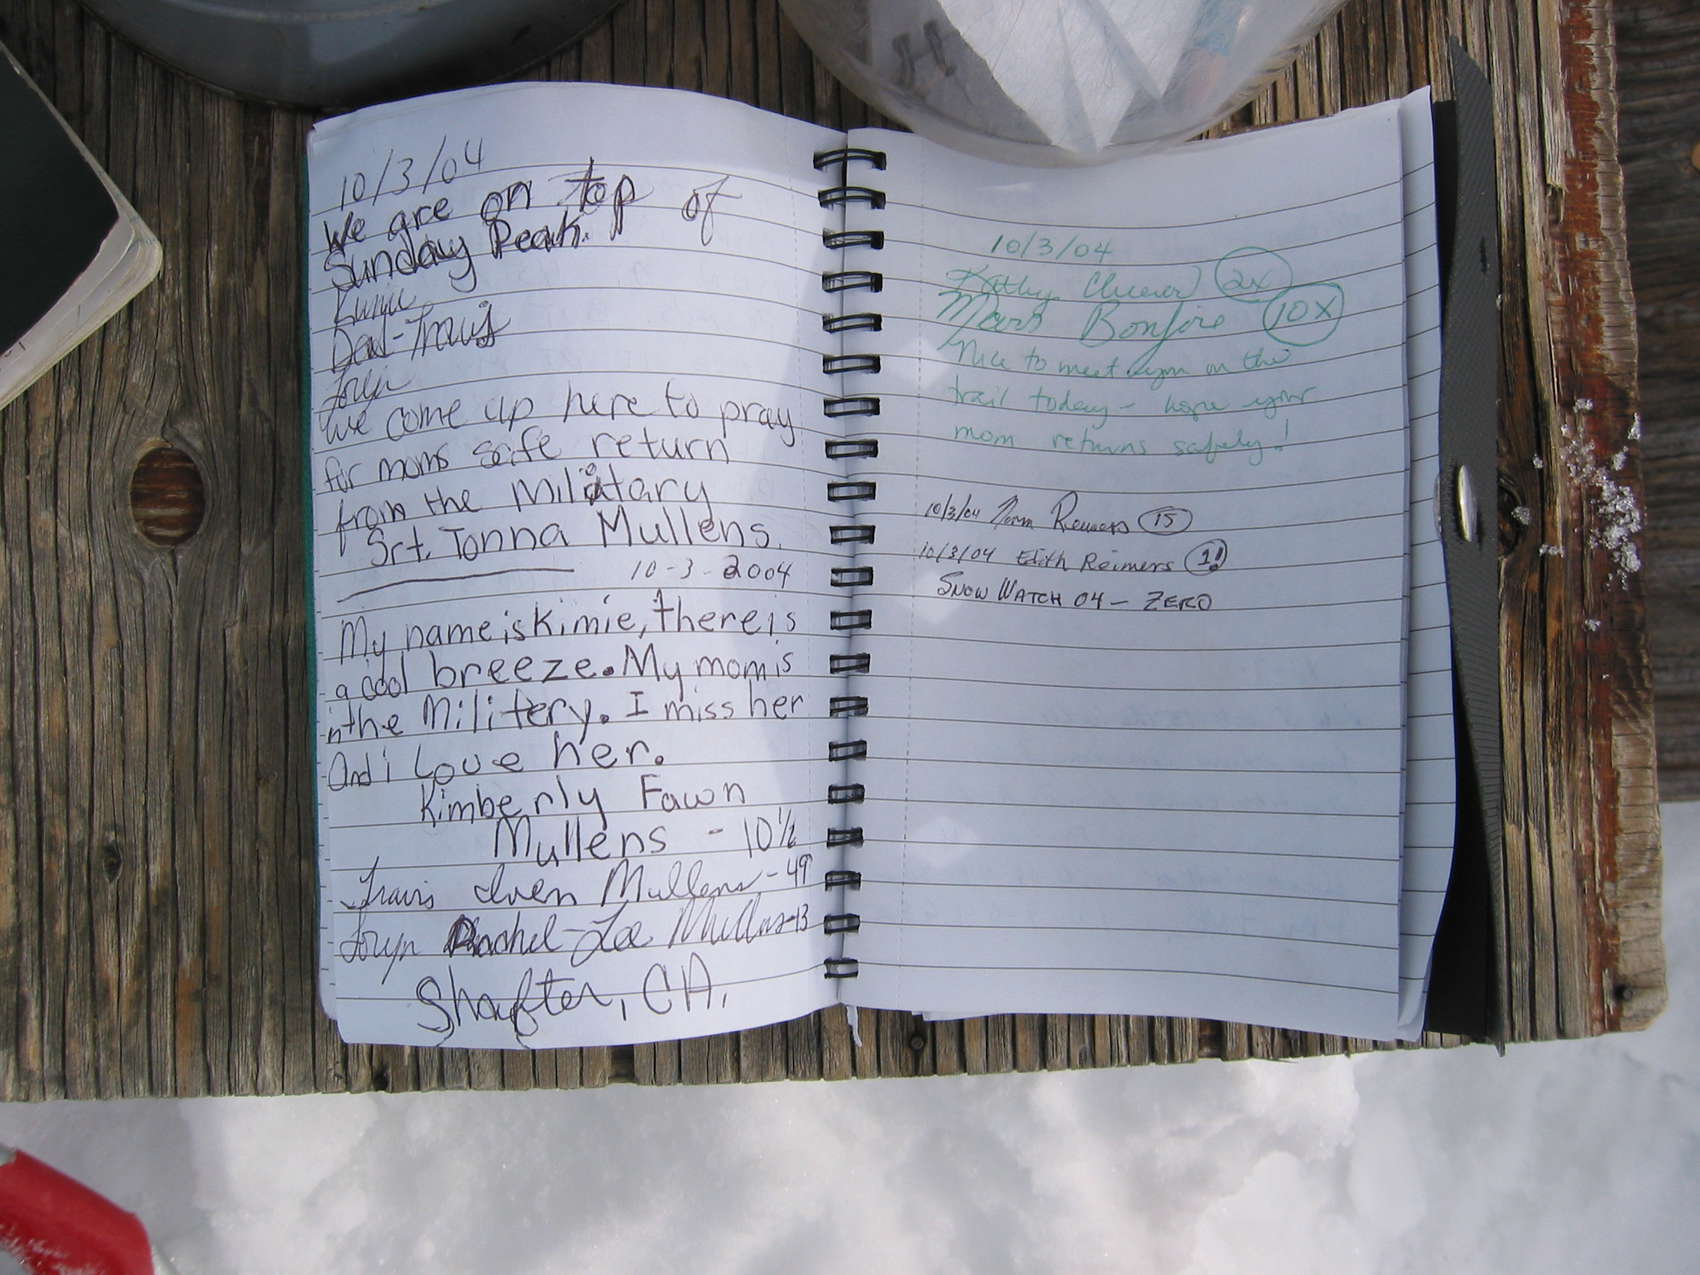 10/3/04
We are on top of
Sunday Peak.
Kimie
Dad-Travis
Toryn
We come up here to pray
for moms safe return
from the Military
Srt. Tonna Mullens.
10-3-2004
My name is Kimie, there is
a cool breeze. My mom is
in the Militery. I miss her
And i Love her.
Kimberly Fawn
Mullens - 10½
Travis Iven Mullens - 49
Toryn Rachel-Lee Mullens-13
Shafter, CA.
10/3/04
Kathy 2x
Mars Bonfire 10X
Nice to meet you on the
trail today - hope your
mom returns safely!
10/3/04 Norm Reimers 15
10/3/04 Edith Reimers 1!
SNOW WATCH 04 - ZERO